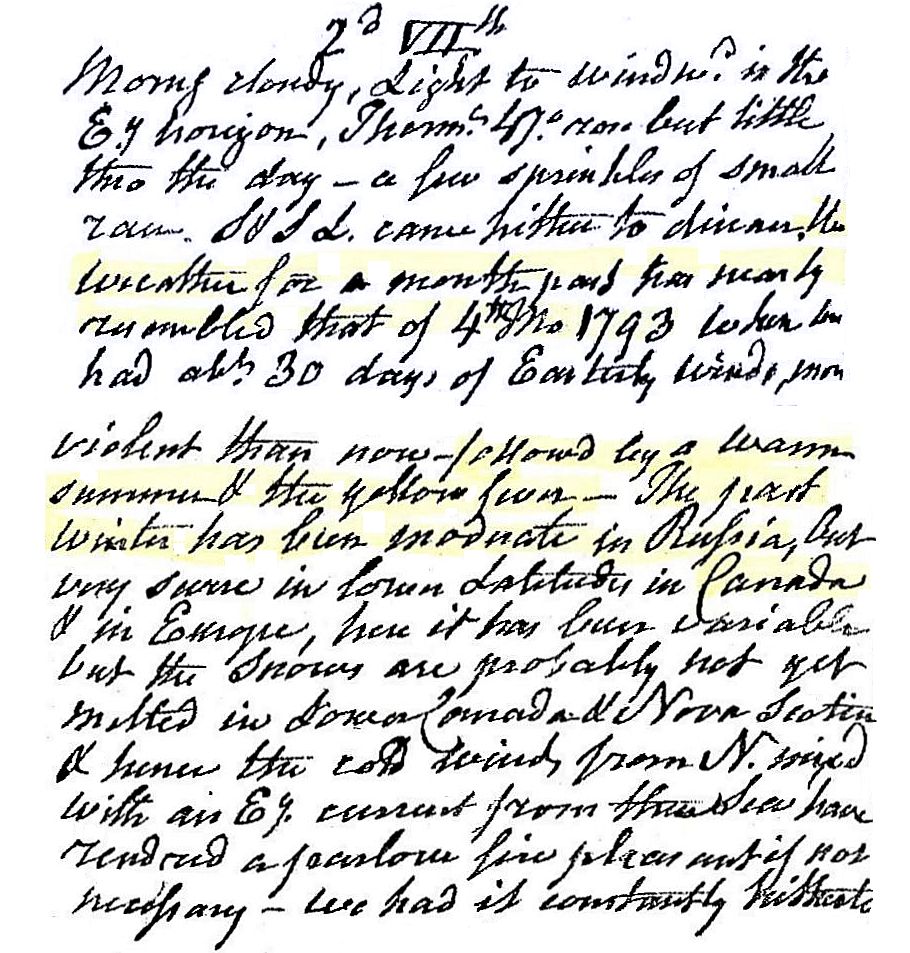 2d VIIth
Morng cloudy, Light to windwd in the
Ey horizon, Thermr 47o rose but little
thro the day – a few sprinkles of small
rain. S & S L. came hither to dinner, the
weather for a month past has nearly
resembled that of 4th Mo 1793 when we
had abt 30 days of Easterly winds, more
violent than now – followd by a warm
summer & the yellow fever – The past
winter has been moderate in Russia, but
very severe in lower Latitudes in Canada
& in Europe, here it has been variable
but the Snows are probably not yet
melted in Lower Canada & Nova Scotia
& hence the cold winds from N. mixed
with an Ey. current from the Sea have
rendred a parlour fire pleasant if not
necessary – we had it constantly hitherto